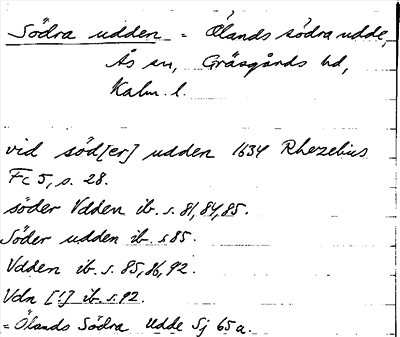 Södra udden = Ölands södra udde,
Ås sn, Gräsgårds hd,
Kalm. l.
vid söd[er] udden 1634 Rhezelius
Fc 5, s. 28.
söder Vdden ib. s. 81, 84, 85.
Söder udden ib. s. 85.
Vdden ib. s. 85, 86, 92.
Vdn [!] ib. s. 92.
= Ölands Södra udde Sj 65 a.